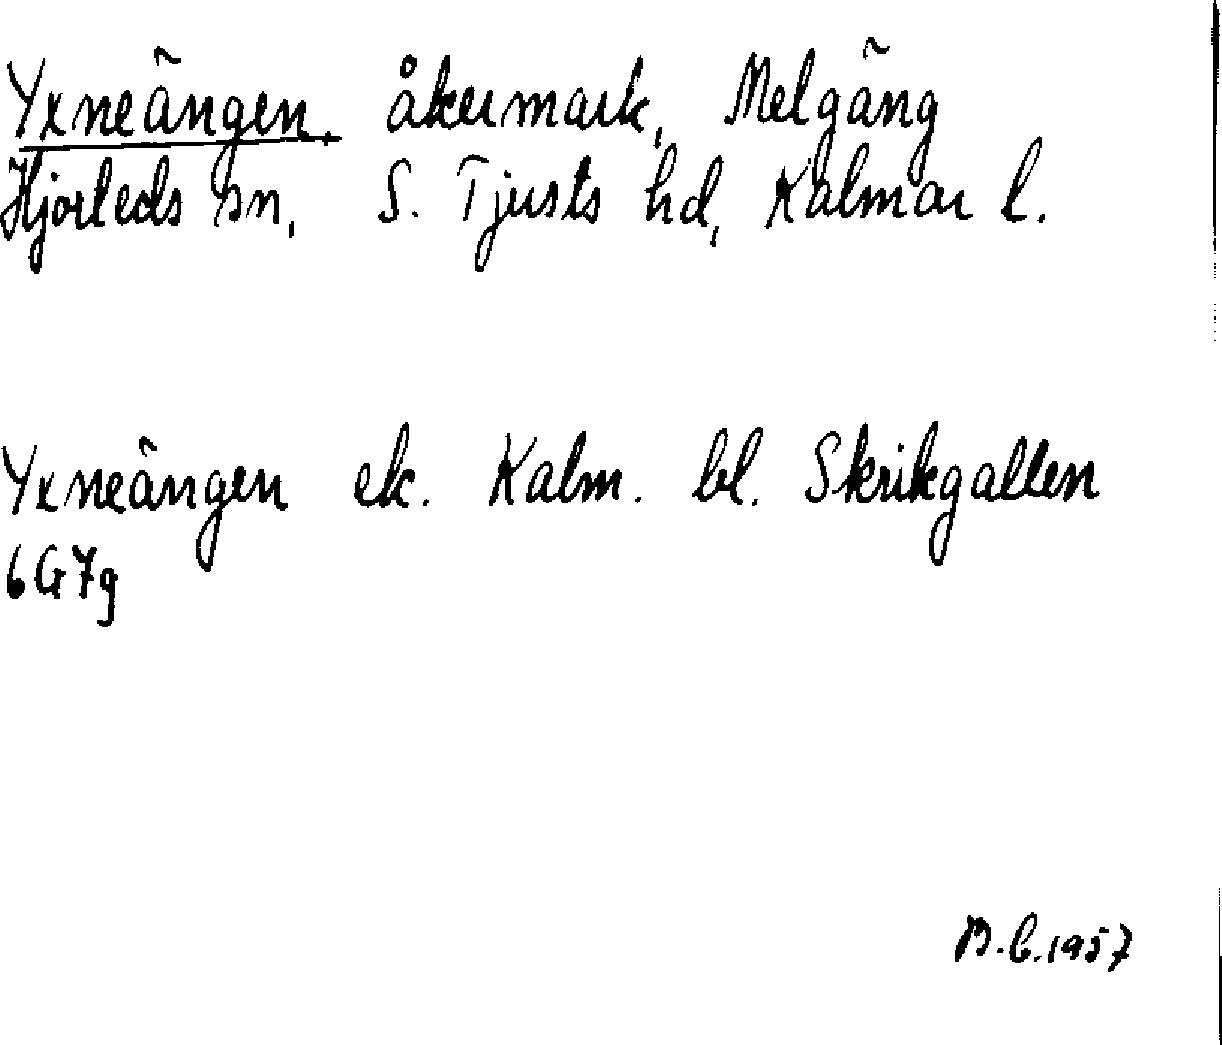 Yxneängen, åkermark, Melgäng
Hjorteds sn, S. Tjusts hd, Kalmar l.
Yxneängen ek. Kalm. bl. Skrikgallen
6G7g
B.L.1957